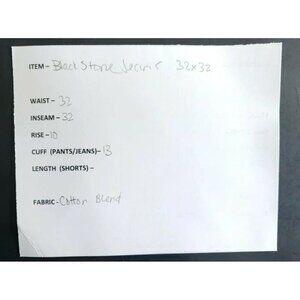 ITEM – Black Stone Jeans 32x32
WAIST – 32
INSEAM – 32
RISE – 10
CUFF (PANTS/JEANS) – 13
LENGTH (SHORTS) –
FABRIC - Cotton Blend